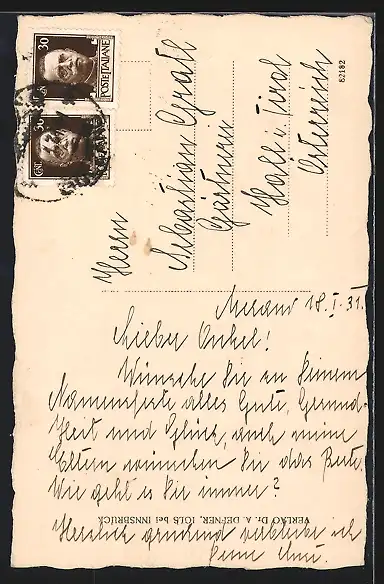 30
POSTE ITALIANE
30
Herrn
Sebastian
Gärtnerei
Hall i. Tirol
Österreich
82182
Meran 18. I. 31.
Lieber Onkel!
Wünsche Dir zu Deinem
Namensfeste alles Gute, Gesund-
heit und Glück, auch meine
Eltern wünschen Dir das Beste.
Wie geht es Dir immer?
Herzlich grüssend verbleibe ich
Deine
VERLAG Dr. A. DEFNER, IGLS bei INNSBRUCK